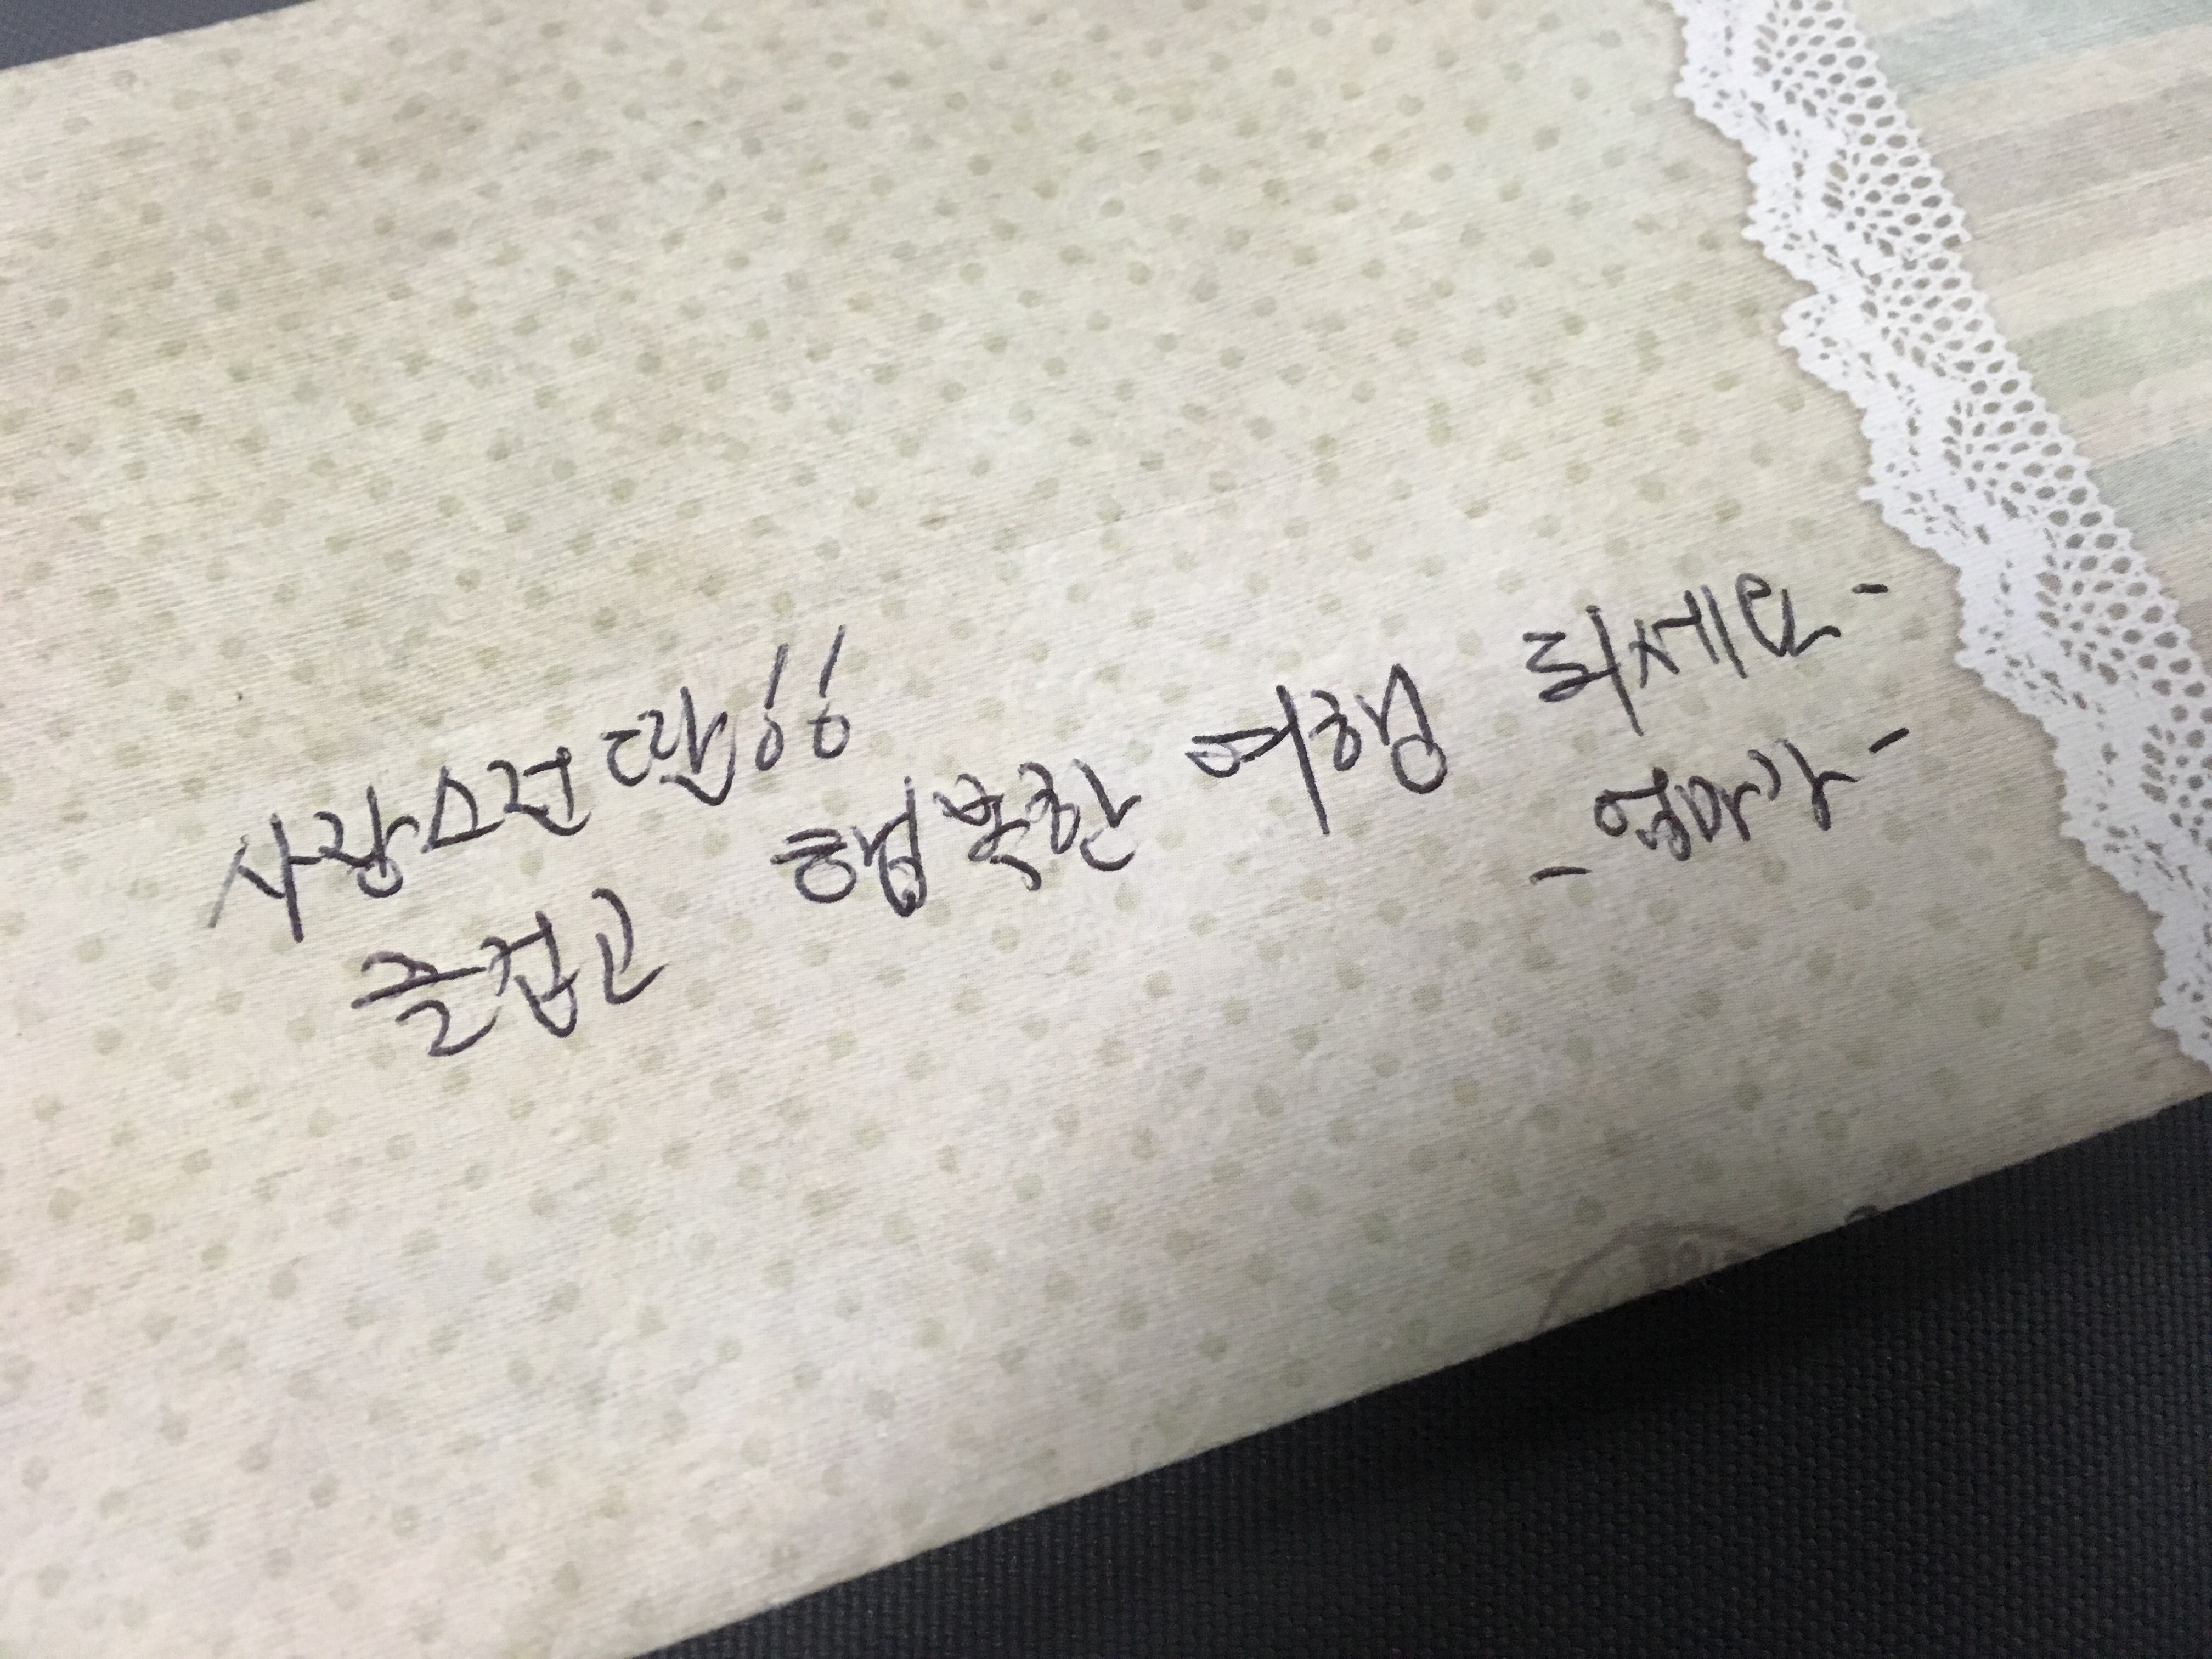 사랑스런 딸!!
즐겁고 행복한 여행 되세요-
- 엄마가 -